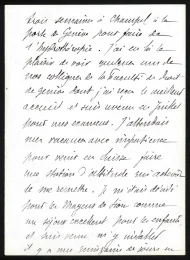 trois semaines à Champel à la
porte de Genève pour faire de
l'hydrothérapie. J'ai eu là le
plaisir de voir quelques uns de
nos collègues de la Faculté de droit
de Genève dont j'ai reçu le meilleur
accueil et suis revenu en juillet
pour mes examens. J'attendais
mes vacances avec impatience
pour venir en Suisse faire
une station d'altitude qui achevât
de me remettre. Je m'étais décidé
pour les Mayens de Sion comme
un séjour excellent pour les enfants
et suis venu m'y installer
il y a une semaine de cours en